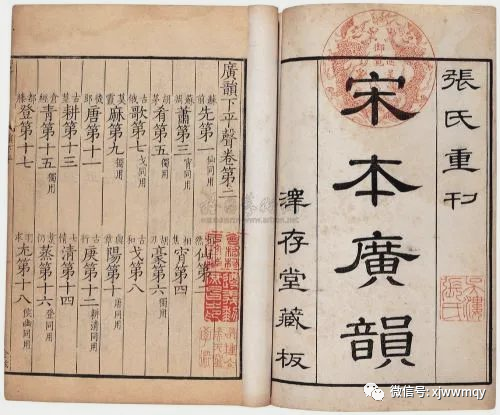 張氏重刊
宋本廣韻
澤存堂藏板
張氏
廣韻下平聲卷第二
蘇前先第一仙同用 然仙第二
蕭第三宵同用 相焦宵第四
胡茅肴第五獨用 胡刀豪第六獨用
古俄歌第七戈同用 古禾戈第八
莫霞麻第九獨用 與章陽第十唐同用
徒郎唐第十一 古行庚第十二耕清同用
古莖耕第十三 七情清第十四
倉經青第十五獨用 蒸第十六登同用
都滕登第十七 求尤第十八侯幽同用
微信号: xjwwmqy